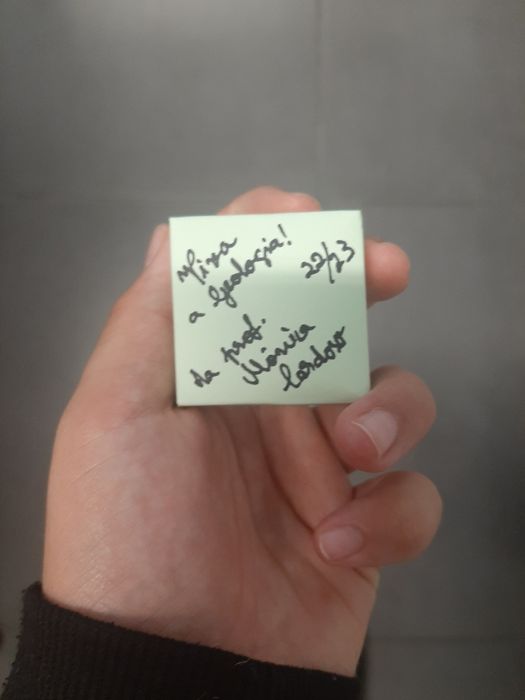 Viva
a Geologia!
22/23
da prof.
Mónica
Cardoso